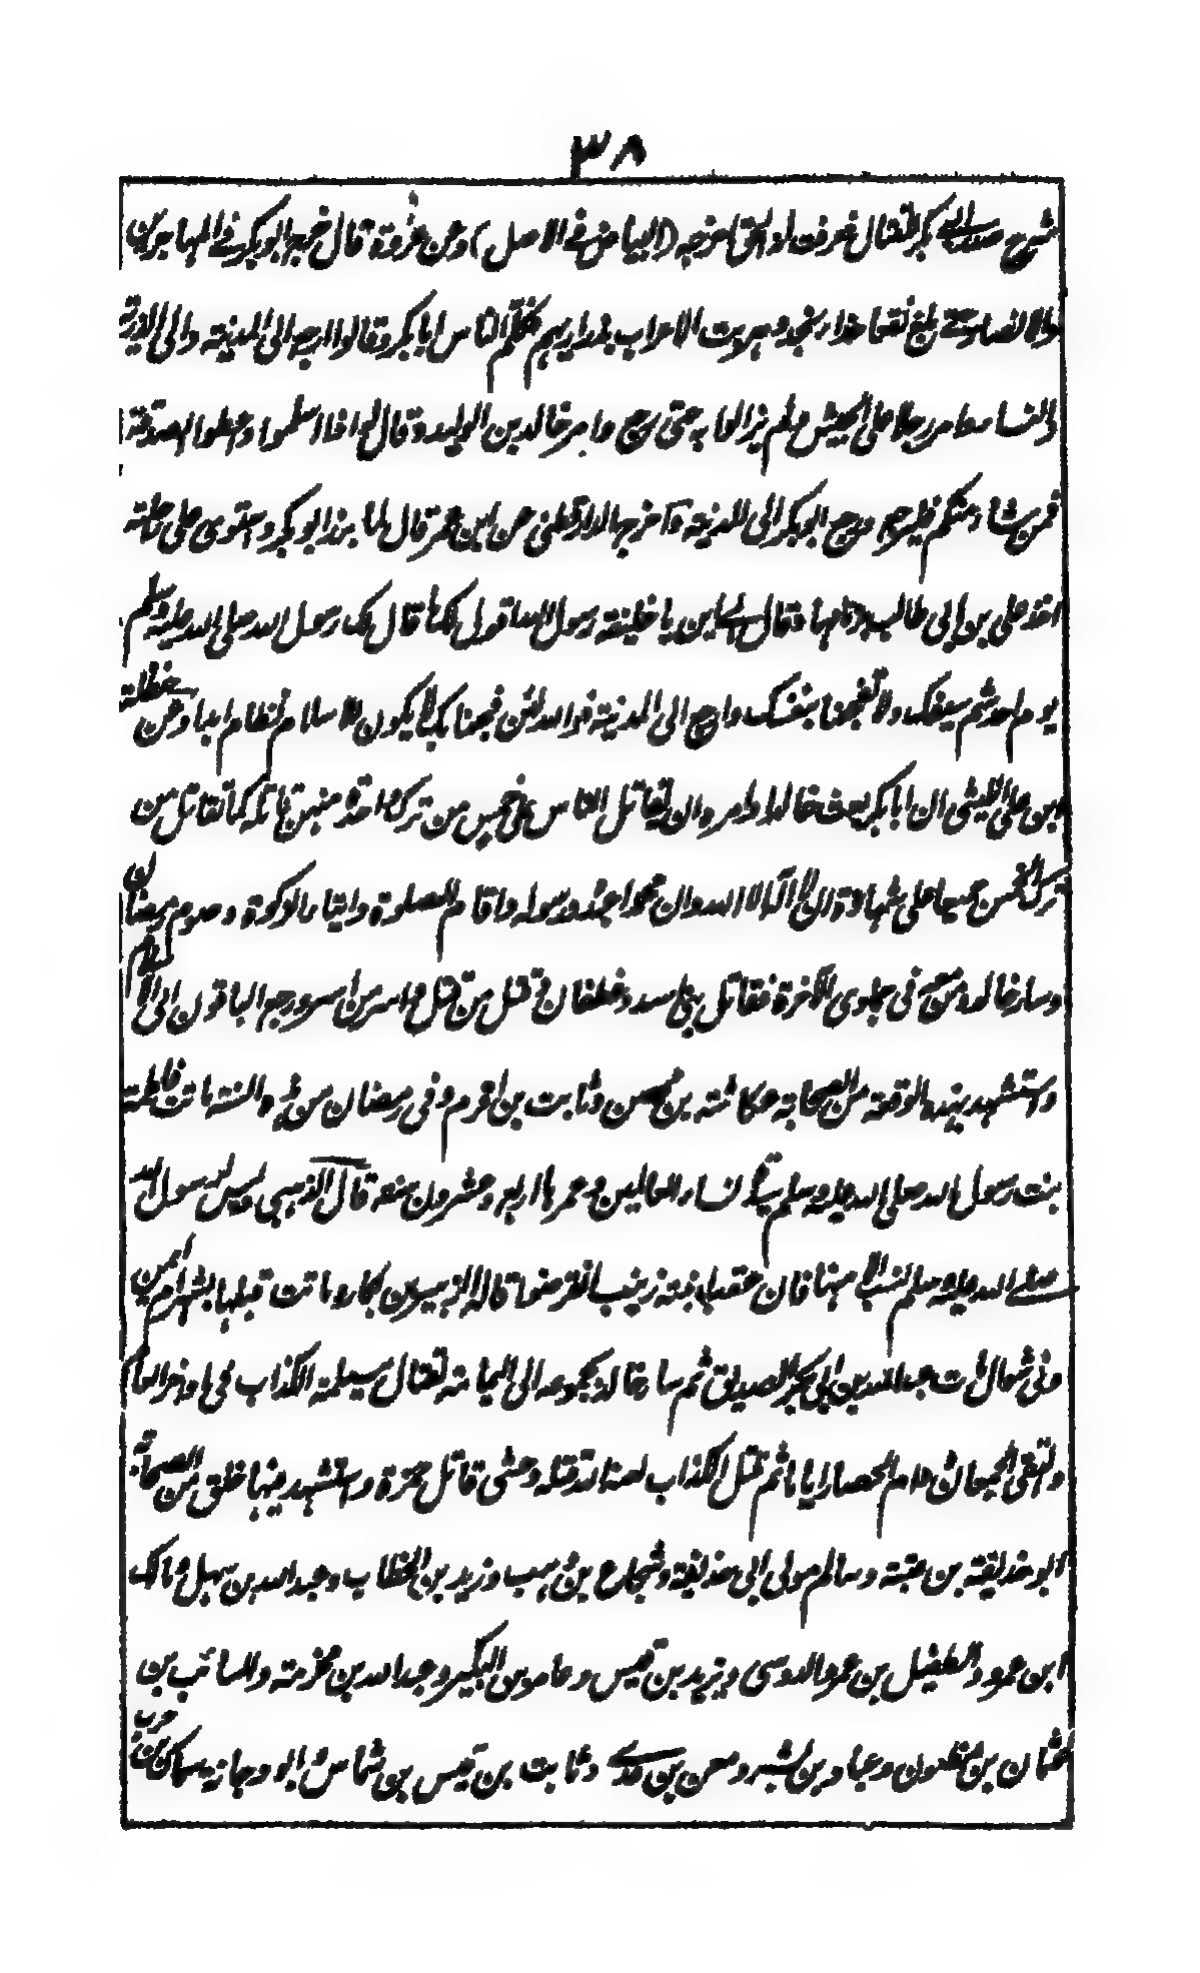 ٣٨
شرح صدر ابي بكر للقتال فعرفت انه الحق اخرجه (البياض في الاصل) وعن عروة قال خرج ابو بكر في المهاجرين
والانصار حتى بلغ نقعا حذاء نجد وهربت الاعراب بذراريهم فكلم الناس ابا بكر وقالوا ارجع الى المدينة والى الذرية
والنساء وامر رجلا على الجيش ولم يزالوا به حتى رجع وامر خالد بن الوليد وقال له اذا اسلموا واعطوا الصدقة
فمن شاء منكم فليرجع ورجع ابو بكر الى المدينة واخرج الدارقطني عن ابن عمر قال لما برز ابو بكر واستوى على راحلته
اخذ علي بن ابي طالب بزمامها وقال الى اين يا خليفة رسول الله اقول لك ما قال لك رسول الله صلى الله عليه وسلم
يوم احد شم سيفك ولا تفجعنا بنفسك وارجع الى المدينة فوالله لئن فجعنا بك لا يكون للاسلام نظام ابدا وعن حنظلة
ابن علي الليثي ان ابا بكر بعث خالدا وامره ان يقاتل الناس على خمس من ترك واحدة منهن قاتله كما تقاتل من
ترك الخمس جميعا على شهادة ان لا اله الا الله وان محمدا عبده ورسوله واقام الصلوة وايتاء الزكوة وصوم رمضان
وسار خالد ومن معه في جمادى الاخرة فقاتل بني اسد وغطفان وقتل من قتل واسر من اسر ورجع الباقون الى الاسلام
واستشهد بهذه الوقعة من الصحابة عكاشة بن محصن وثابت بن اقرم وفي رمضان من هذه السنة ماتت فاطمة
بنت رسول الله صلى الله عليه وسلم سيدة نساء العالمين وعمرها اربع وعشرون سنة قال الذهبي وليس لرسول الله
صلى الله عليه وسلم نسب الا منها فان عقب ابنته زينب انقرضوا قاله الزبير بن بكار وماتت قبلها بشهر ام ايمن
وفي شوال مات عبد الله بن ابي بكر الصديق ثم سار خالد بجموعه الى اليمامة لقتال مسيلمة الكذاب في اواخر العام
والتقى الجمعان ودام الحصار اياما ثم قتل الكذاب لعنه الله قتله وحشي قاتل حمزة واستشهد فيها خلق من الصحابة
ابو حذيفة بن عتبة وسالم مولى ابي حذيفة وشجاع بن وهب وزيد بن الخطاب وعبد الله بن سهل ومالك
ابن عمرو والطفيل بن عمرو الدوسي ويزيد بن قيس وعامر بن البكير وعبد الله بن مخرمة والسائب بن
عثمان بن مظعون وعباد بن بشر ومعن بن عدي وثابت بن قيس بن شماس وابو دجانة سماك بن حرب